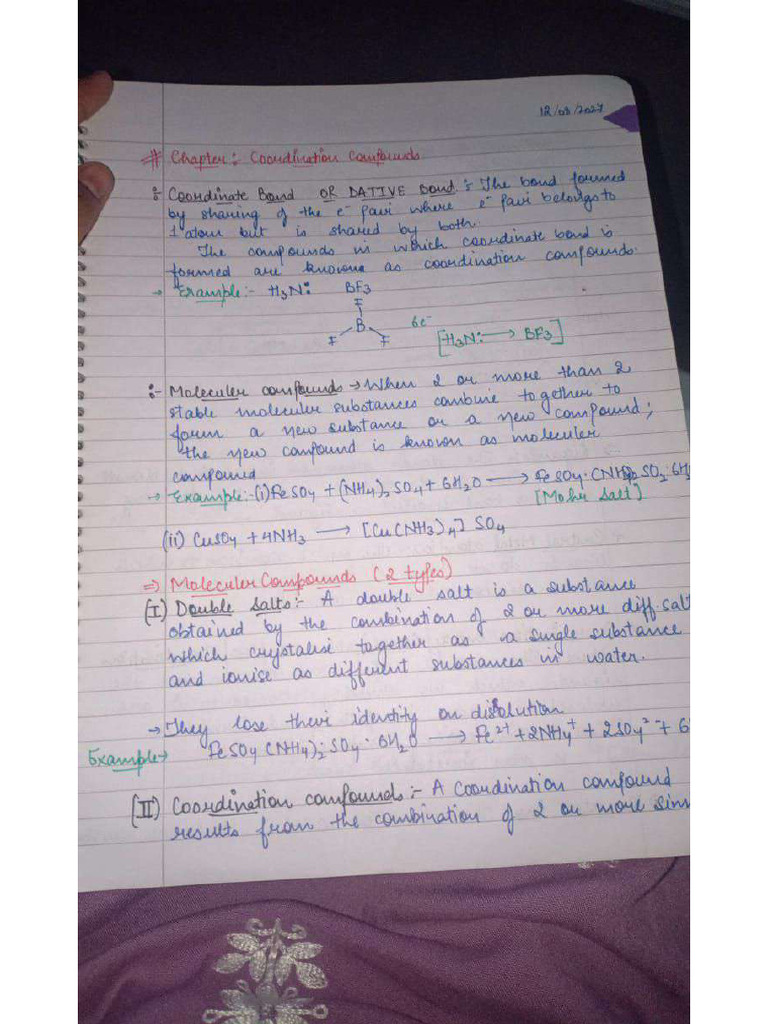 12/08/2027
# Chapter: Coordination Compounds
:- Coordinate Bond OR DATIVE Bond :- The bond formed
by sharing of the e⁻ pair where e⁻ pair belongs to
1 atom but is shared by both.
The compounds in which coordinate bond is
formed are known as coordination compounds.
→ Example:- H3N: BF3
F
B
F F
6e⁻
[H3N: → BF3]
:- Moleculer compounds → When 2 or more than 2
stable moleculer substances combine together to
form a new substance or a new compound;
the new compound is known as moleculer
compound
→ Example:- (i) FeSO4 + (NH4)2SO4 + 6H2O → FeSO4·(NH4)2SO2·6H
[Mohr Salt]
(ii) CuSO4 + 4NH3 → [Cu(NH3)4] SO4
⇒ Moleculer Compounds (2 types)
(I) Double Salts:- A double salt is a substance
obtained by the combination of 2 or more diff. salt
which crystalise together as a single substance
and ionise as different substances in water.
→ They lose their identity on dissolution
Example→ FeSO4 (NH4)2·SO4·6H2O → Fe²⁺ + 2NH4⁺ + 2SO4²⁻ + 6
(II) Coordination compounds:- A Coordination compound
results from the combination of 2 or more sim